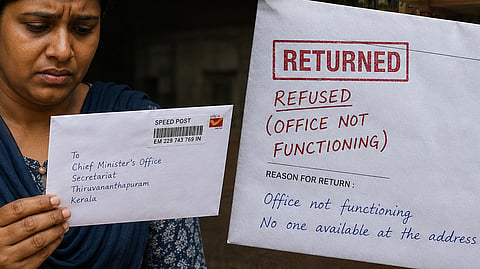 SPEED POST
EM 228 743 769 IN
To
Chief Minister's Office
Secretariat
Thiruvananthapuram
Kerala
RETURNED
REFUSED
(OFFICE NOT
FUNCTIONING)
REASON FOR RETURN :
Office not functioning
No one available at the address